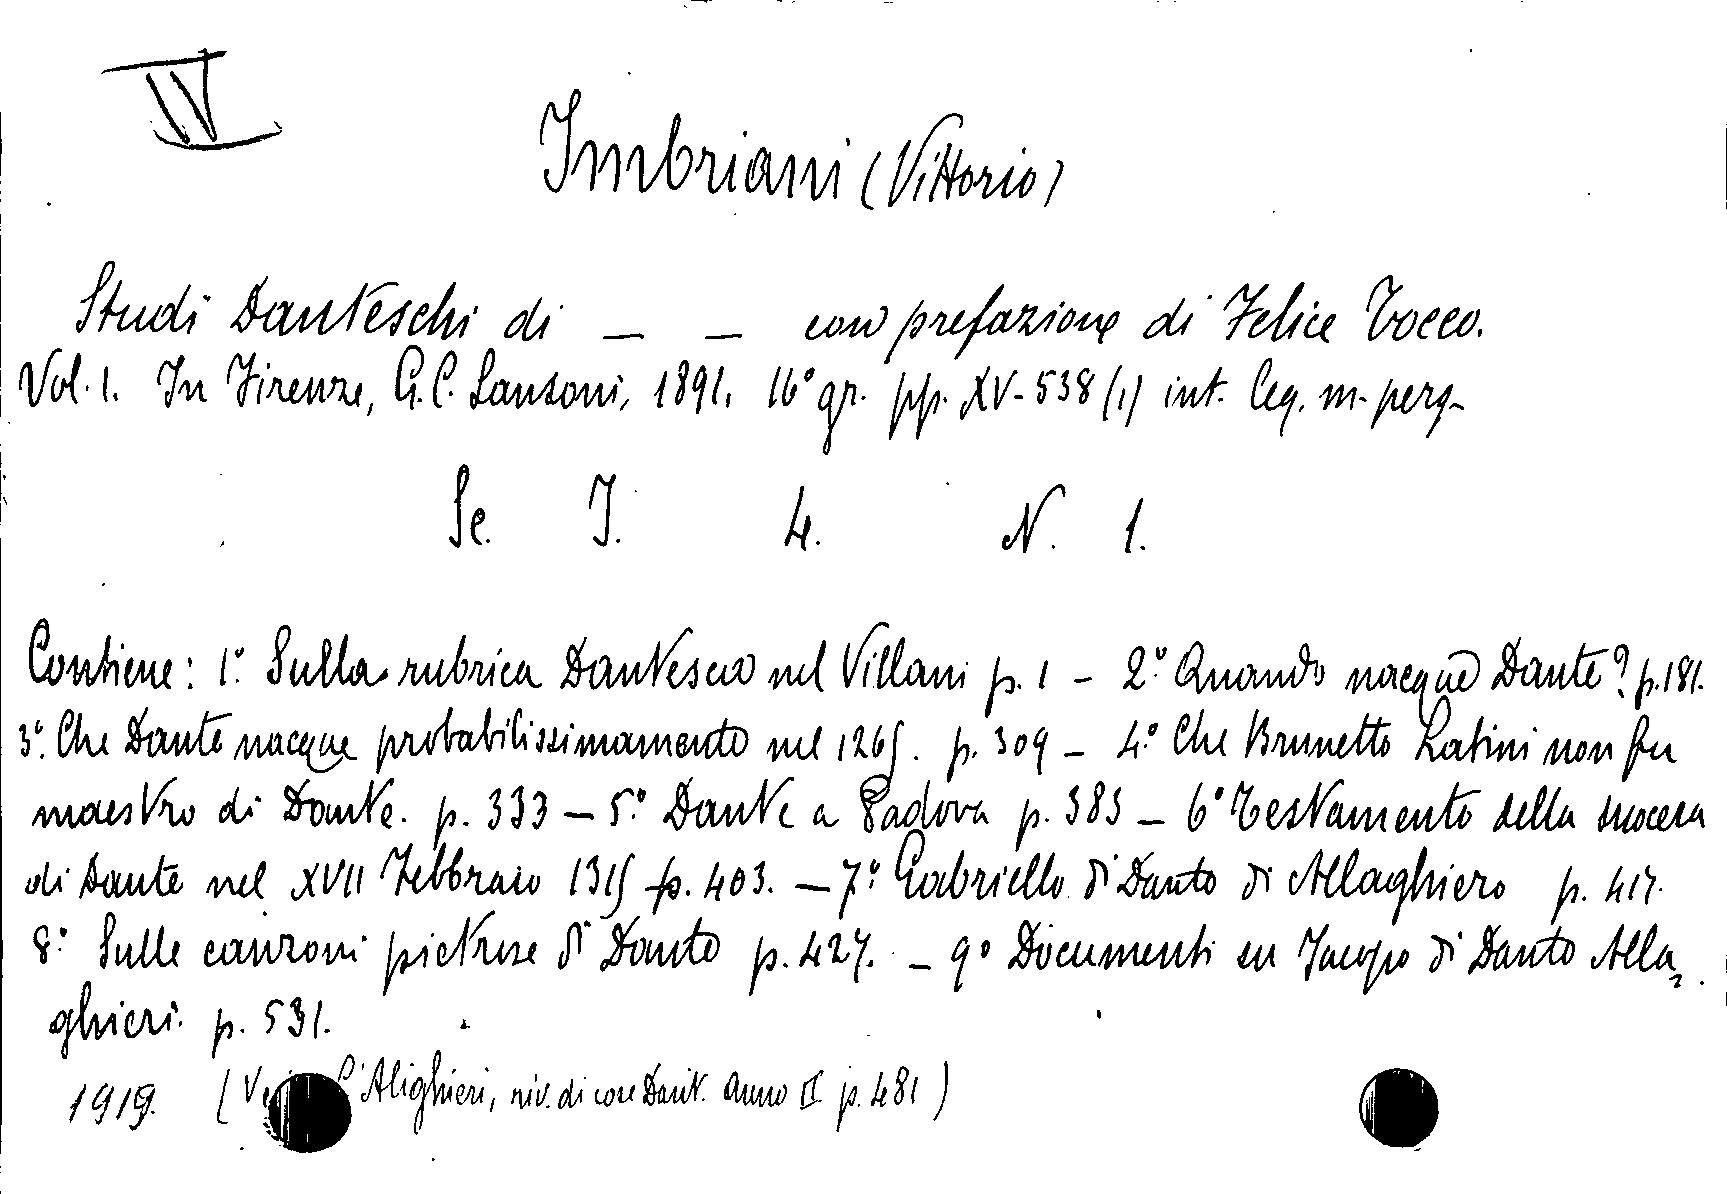 IV
Imbriani (Vittorio)
Studi Danteschi di — — con prefazione di Felice Tocco.
Vol. 1. In Firenze, G. C. Sansoni, 1891. 16° gr. pp. XV-538 (1) int. leg. m. perg.
Se. I. 4. N. 1.
Contiene: 1.° Sulla rubrica Dantesca nel Villani p. 1 - 2.° Quando nacque Dante? p. 181.
3.° Che Dante nacque probabilissimamente nel 1265. p. 309 - 4.° Che Brunetto Latini non fu
maestro di Dante. p. 333 - 5.° Dante a Padova p. 383 - 6° Testamento della suocera
di Dante nel XVII Febbraio 1315 p. 403. - 7.° Gabriello di Dante di Allaghiero p. 417.
8.° Sulle canzoni pietrose di Dante p. 427. - 9° Documenti su Jacopo di Dante Alla=
ghieri. p. 531.
1919. ( l'Alighieri, riv. di cose Dant. anno II p. 481)